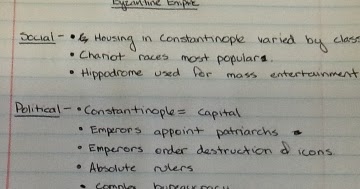 Byzantine Empire
Social - • Housing in Constantinople varied by class
• Chariot races most popular.
• Hippodrome used for mass entertainment
Political - • Constantinople = capital
• Emperors appoint patriarchs
• Emperors order destruction of icons
• Absolute rulers
• Complex bureaucracy